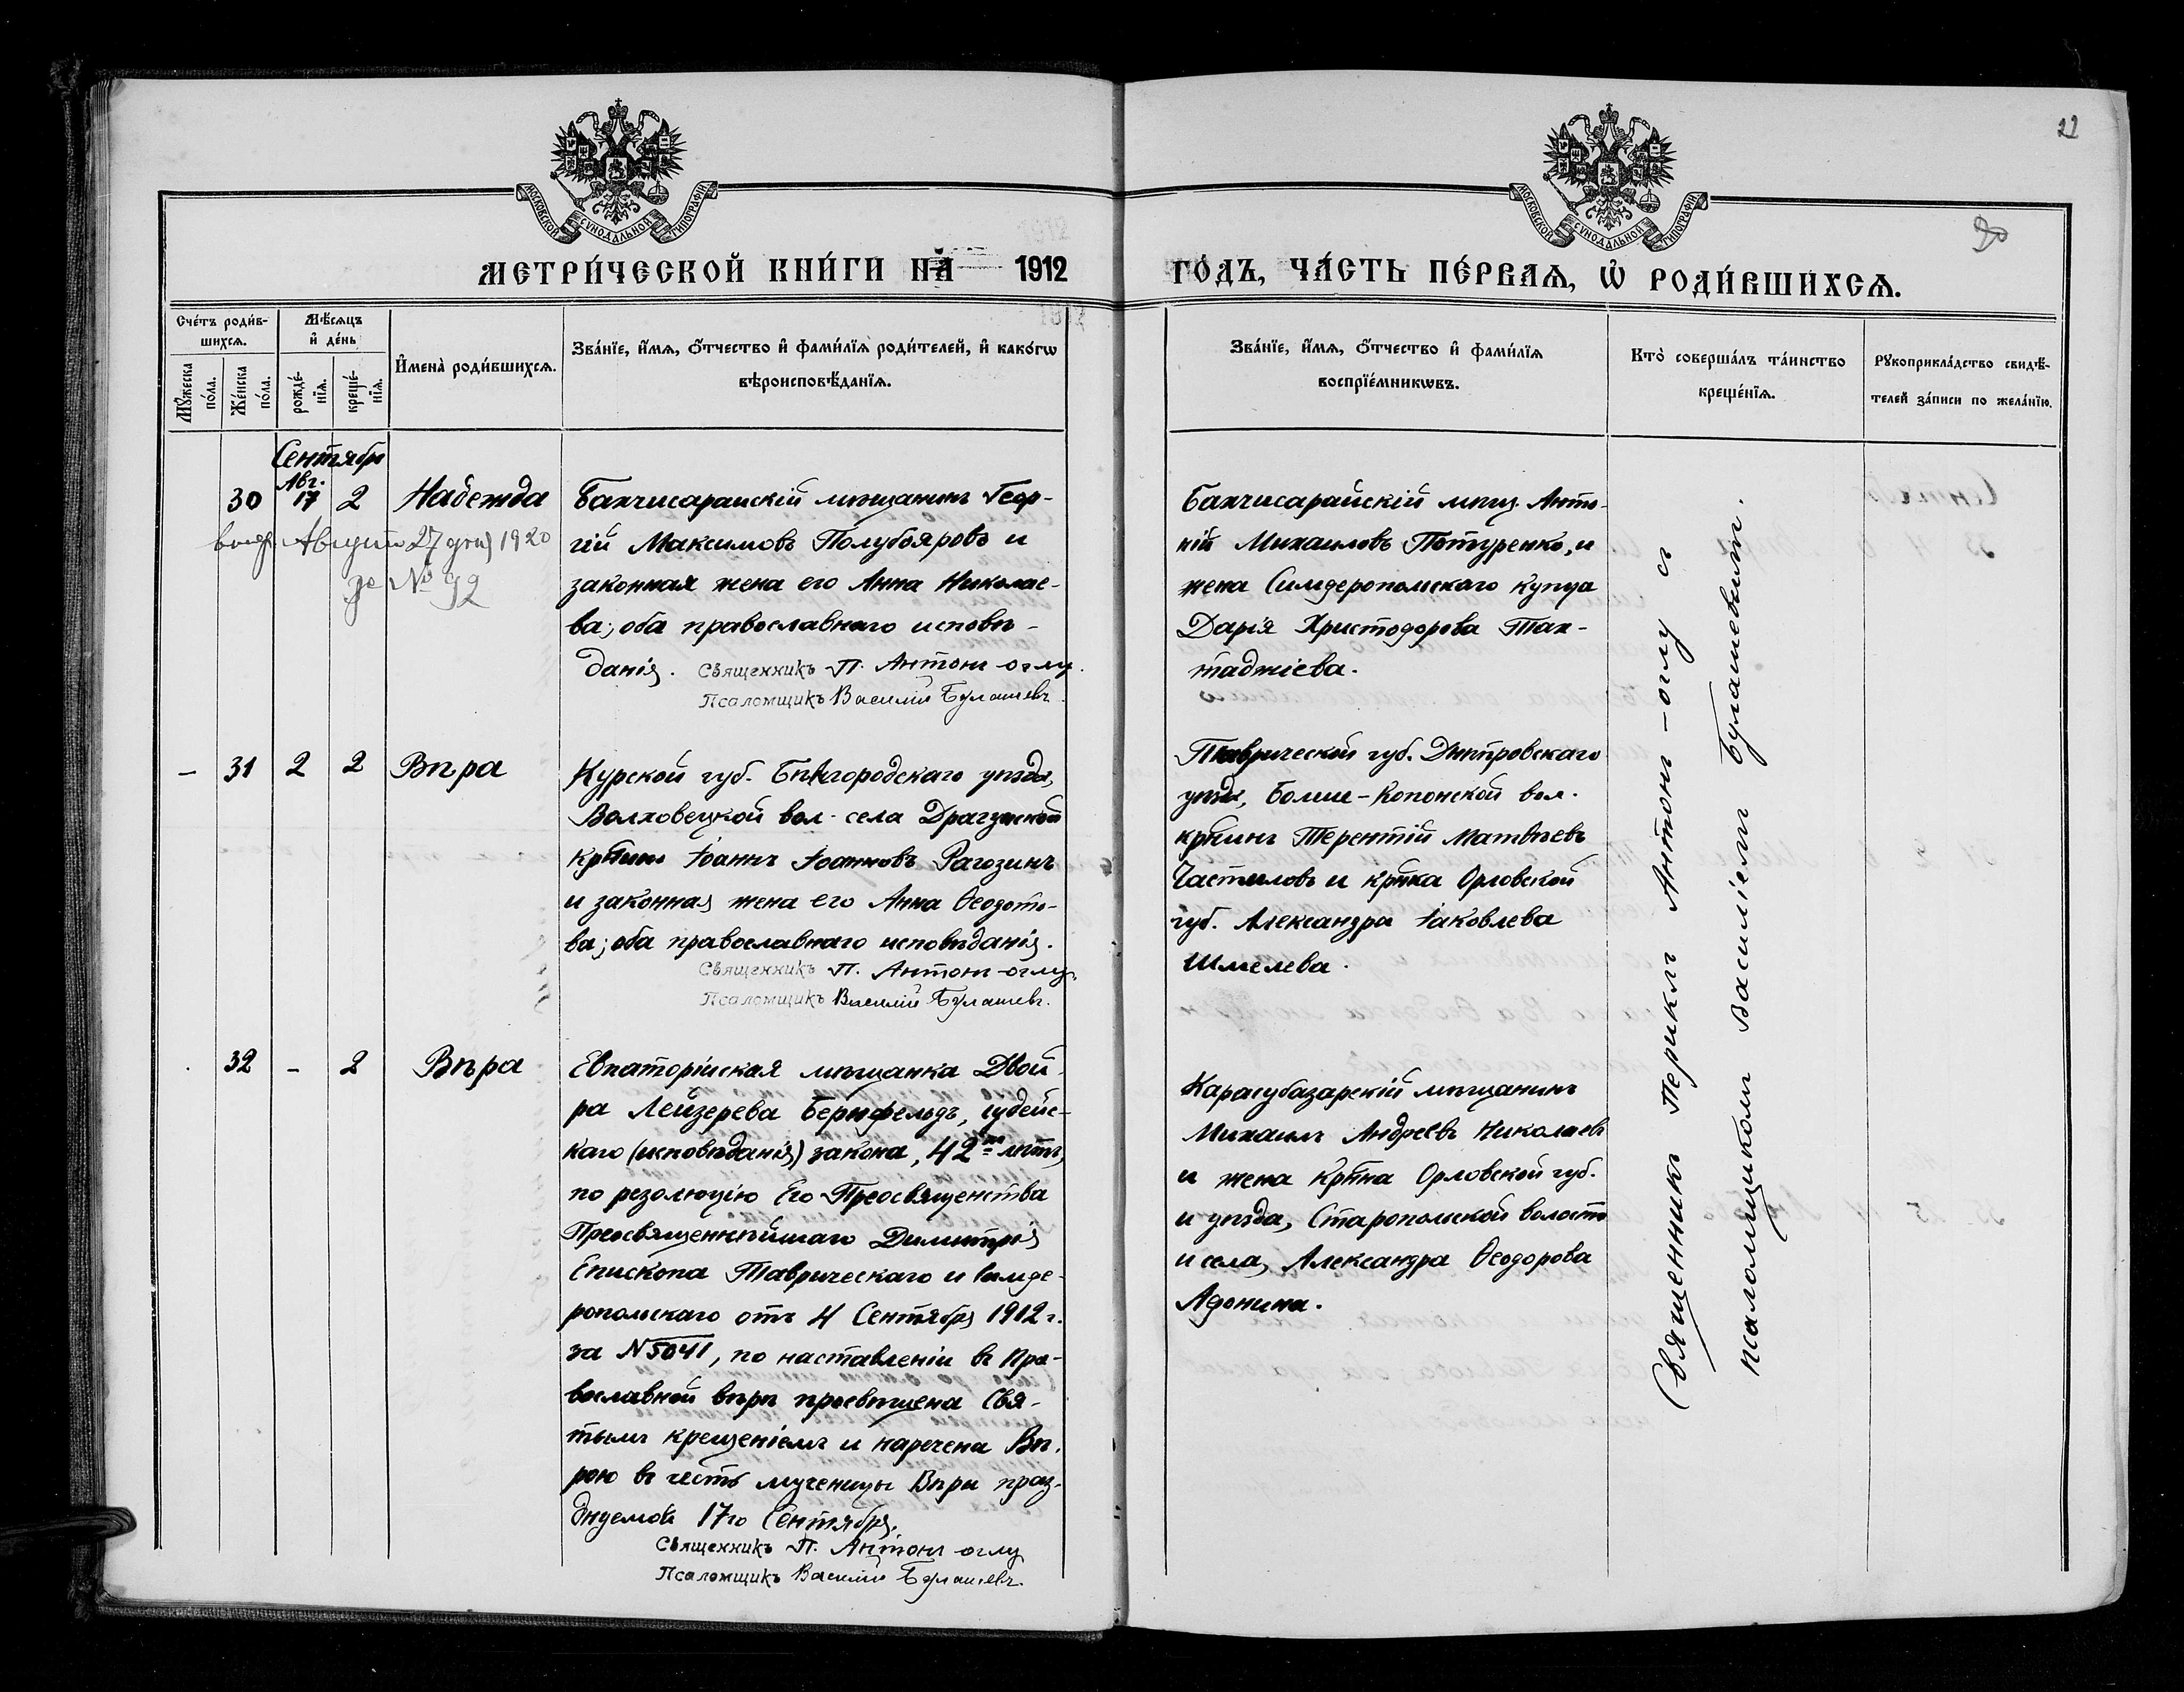 22
20
МОСКОВСКОЙ СѴНОДАЛЬНОЙ ТИПОГРАФІИ
МОСКОВСКОЙ СѴНОДАЛЬНОЙ ТИПОГРАФІИ
МЕТРИ́ЧЕСКОЙ КНИ́ГИ НА̀ 1912 ГО́ДЪ, ЧА́СТЬ ПЕ́РВАѦ, Ѡ҆ РОДИ́ВШИХСѦ.
Сче́тъ роди́в-
шихсѧ.
Мꙋ́жеска по́ла.
Же́нска по́ла.
Мѣ́сѧцъ и҆ де́нь
рожде́-нїѧ.
креще́-нїѧ.
И҆мена̀ роди́вшихсѧ.
Зва́нїе, и҆́мѧ, ѻ҆́тчество и҆ фами́лїѧ роди́телей, и҆ како́гѡ
вѣроисповѣ́данїѧ.
Зва́нїе, и҆́мѧ, ѻ҆́тчество и҆ фами́лїѧ
воспрїе́мникѡвъ.
Кто̀ соверша́лъ та́инство
креще́нїѧ.
Рꙋкоприкла́дство свидѣ́-
телей за́писи по жела́нїю.
Сентября
Авг.
30 17 2 Надежда
Августа 27 дня 1920
за № 92
Бахчисарайскій мѣщанинъ Геор-
гій Максимовъ Полубояровъ и
законная жена его Анна Николае-
ва; оба православнаго исповѣ-
данія. Священникъ П. Антонъ-оглу.
Псаломщикъ Василій Булашевъ.
Бахчисарайскій мѣщ. Анто-
ній Михаиловъ Потуренко, и
жена Симферопольскаго купца
Дарія Христодорова Тах-
таджіева.
— 31 2 2 Вѣра
Курской губ. Бѣлгородскаго уѣзда,
Волховецкой вол. села Драгунской
кр̃нинъ Іоаннъ Іоанновъ Рагозинъ
и законная жена его Анна Ѳеодото-
ва; оба православнаго исповѣданія.
Священникъ П. Антонъ-оглу.
Псаломщикъ Василій Булашевъ.
Таврической губ. Днѣпровскаго
уѣзда, Больше-Копонской вол.
кр̃нинъ Терентій Матвѣевъ
Частиловъ и кр̃нка Орловской
губ. Александра Іаковлева
Шмелева.
32 - 2 Вѣра
Евпаторійская мѣщанка Двой-
ра Лейзерева Бернфельдъ, іудейс-
каго (исповѣданія) закона, 42 лѣтъ,
по резолюцію Его Преосвященства
Преосвященнѣйшаго Димитрія
Епископа Таврическаго и Симфе-
ропольскаго отъ 4 Сентября 1912 г.
за N 5041, по наставленіи въ Пра-
вославной вѣрѣ просвѣщена Свя-
тымъ крещеніемъ и наречена Вѣ-
рою въ честь мученицы Вѣры праз-
днуемой 17го Сентября.
Священникъ П. Антонъ-оглу
Псаломщикъ Василій Булашевъ.
Карасубазарскій мѣщанинъ
Михаилъ Андреевъ Николаевъ
и жена кр̃нина Орловской губ.
и уѣзда, Старопольской волости
и села, Александра Ѳеодорова
Афонина.
Священникъ Периклъ Антонъ-оглу съ
псаломщикомъ Василіемъ Булашевымъ.